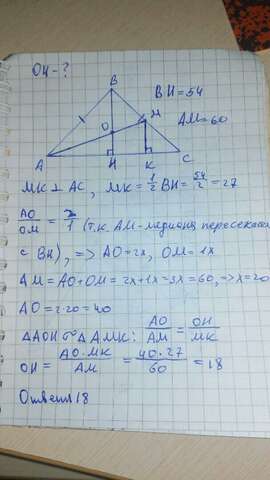 OH-?
B
BH=54
M
AM=60
O
A
H
K
C
MK⊥AC, MK=1/2 BH=54/2=27
AO/OM=2/1 (т.к. AM-медиана пересекает
с BH), => AO=2x, OM=1x
AM=AO+OM=2x+1x=3x=60,=>x=20
AO=2·20=40
ΔAOH∾ΔAMK: AO/AM=OH/MK
OH=AO·MK/AM=40·27/60=18
Ответ: 18